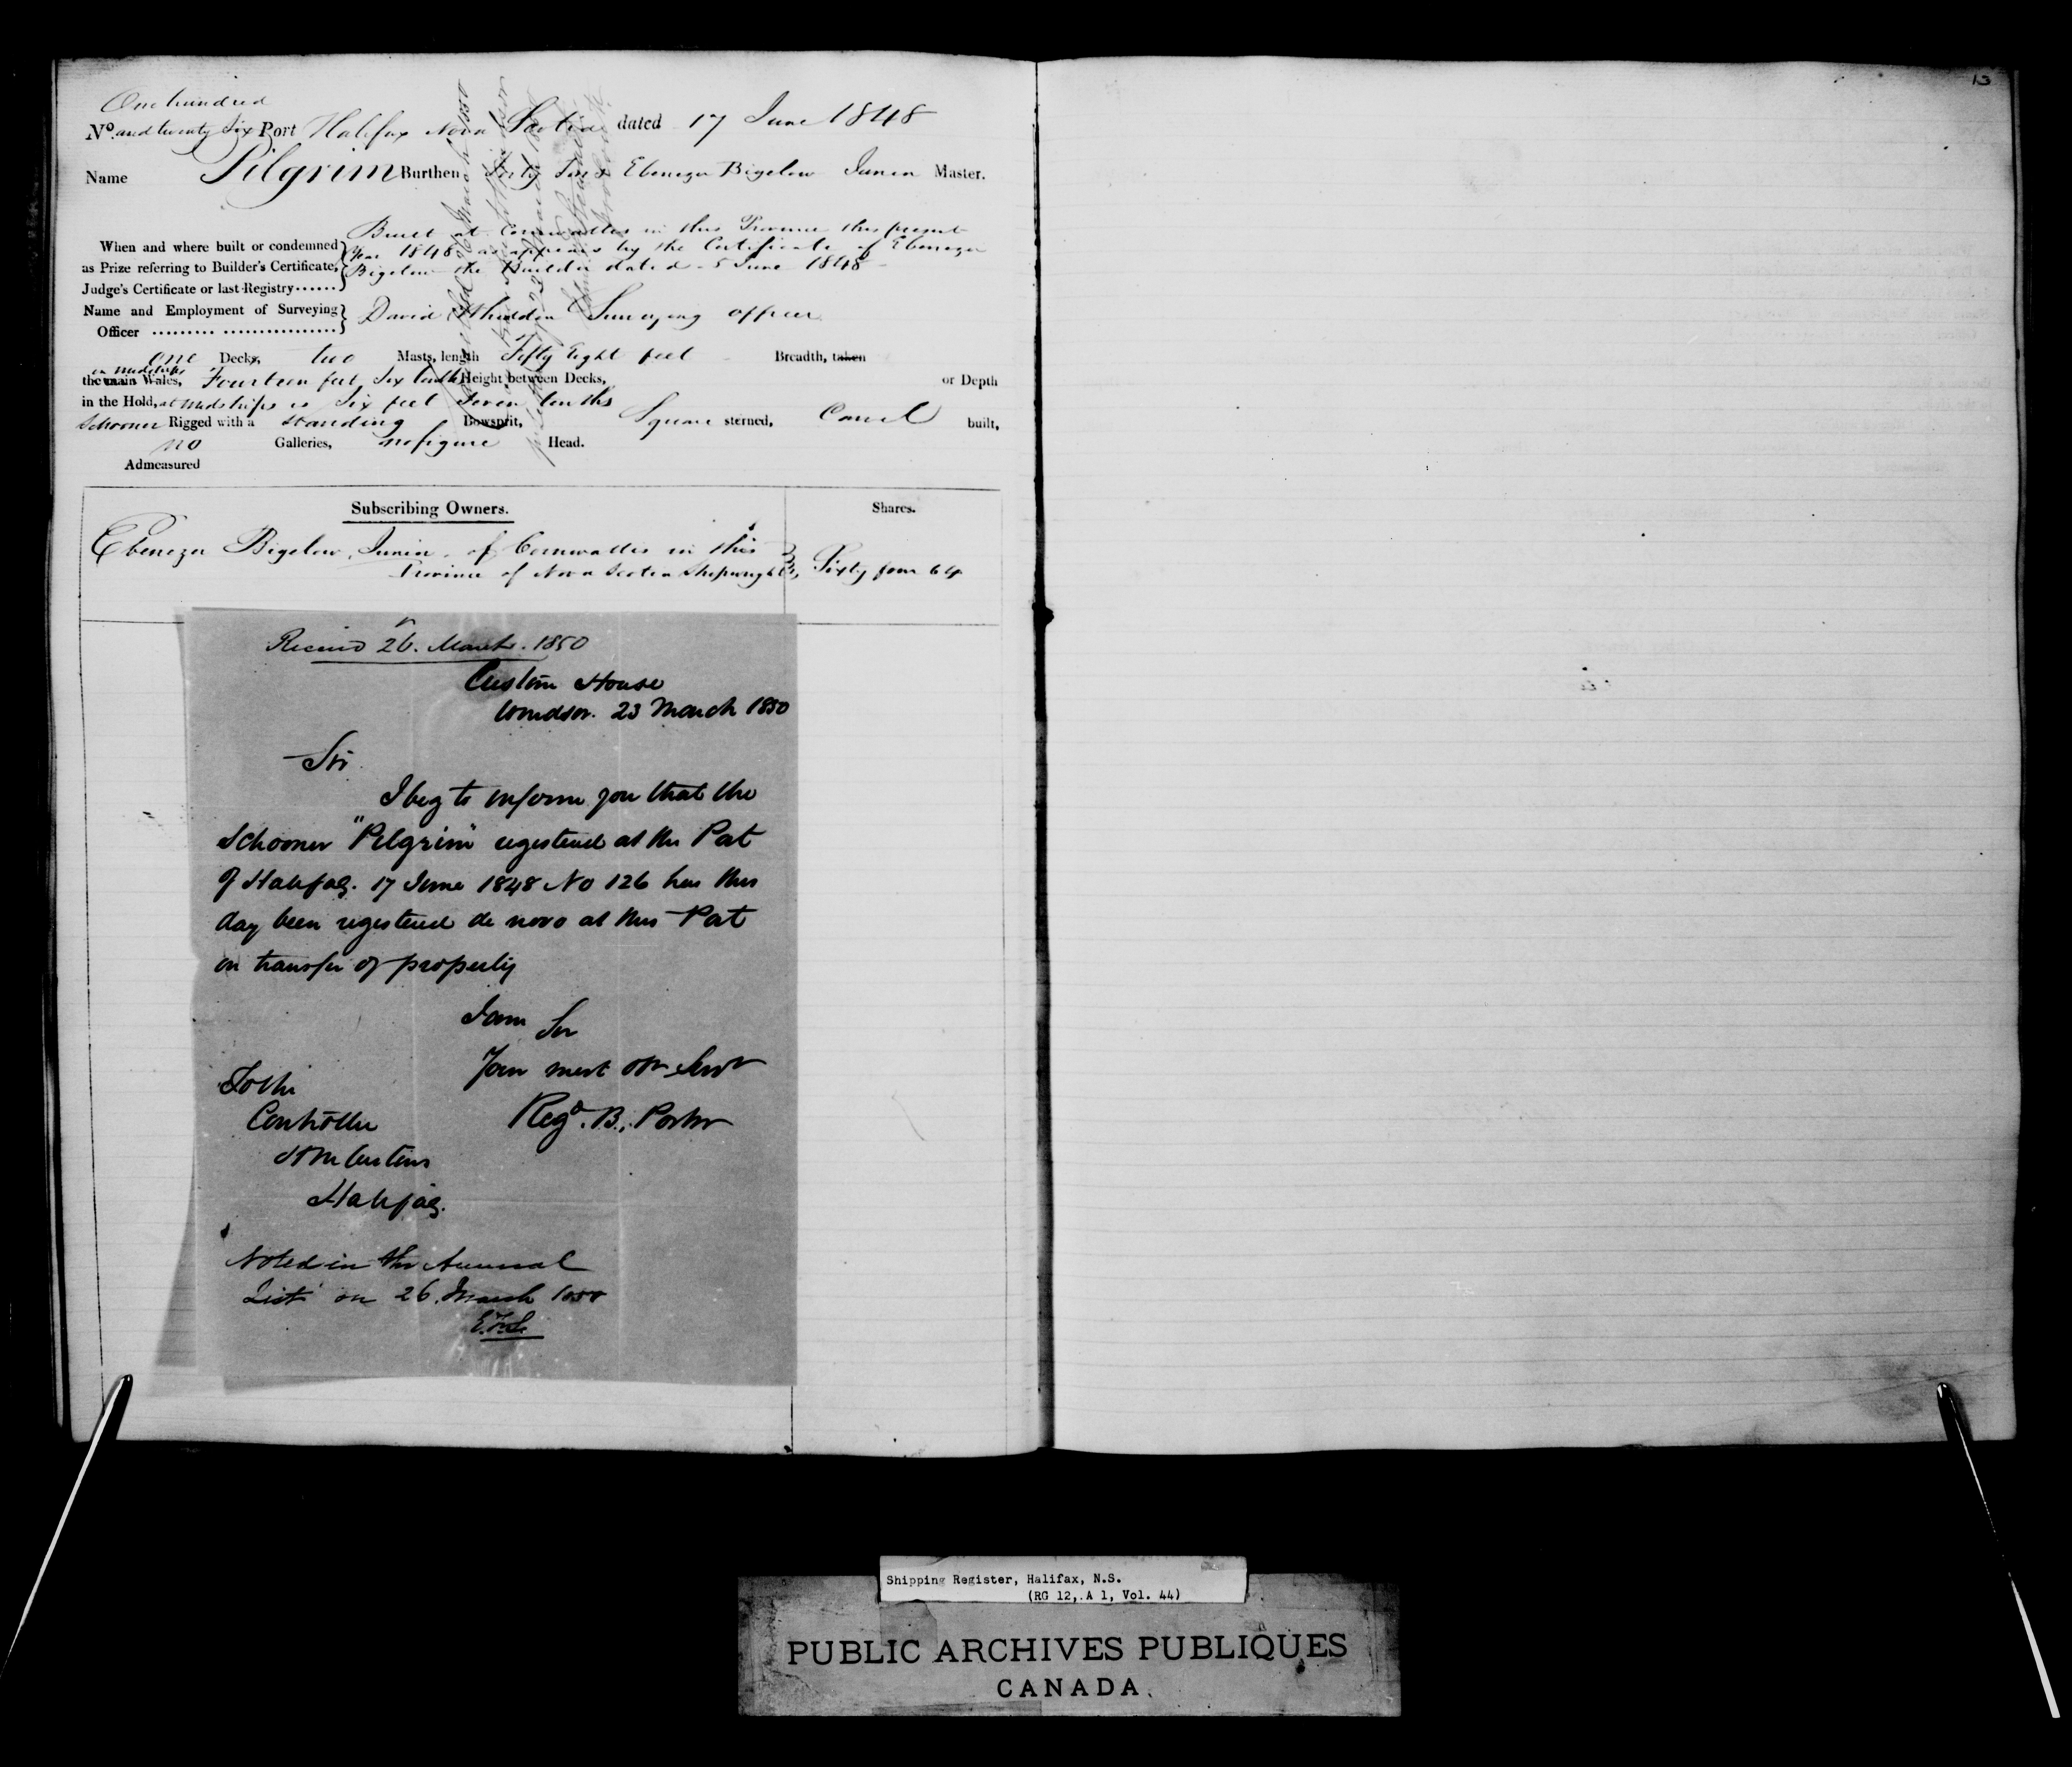 One hundred
No. and twenty Six Port Halifax Nova Scotia dated 17 June 1848
Name Pilgrim Burthen Forty Tons Ebenezer Bigelow Junior Master.
Built at Cornwallis in this Province this present
When and where built or condemned Year 1848 as appears by the Certificate of Ebenezer
as Prize referring to Builder's Certificate, Bigelow the Builder dated 5 June 1848
Judge's Certificate or last Registry......
Name and Employment of Surveying David Whidden Surveying officer
Officer ......... ................
One Decks, two Masts, length Fifty Eight feet Breadth, taken
in Midships
the main Wales, Fourteen feet Six tenths Height between Decks, or Depth
in the Hold, at Midships is Six feet Seven tenths
Schooner Rigged with a Standing Bowsprit, Square sterned, Carvel built,
no Galleries, no figure Head.
Admeasured
Subscribing Owners. Shares.
Ebenezer Bigelow, Junior of Cornwallis in this
Province of Nova Scotia Shipwright, Sixty four 64
Received 26. March. 1850
Custom House
Windsor. 23 March 1850
Sir
I beg to inform you that the
Schooner "Pilgrim" registered at the Port
of Halifax. 17 June 1848 No 126 has this
day been registered de novo at this Port
on transfer of property
I am Sir
Your most ob Servt
To the
Regd. B. Porter
Controller
HM Customs
Halifax.
Noted in the Annual
List on 26. March 1850
13
Shipping Register, Halifax, N.S.
(RG 12, A 1, Vol. 44)
PUBLIC ARCHIVES PUBLIQUES
CANADA